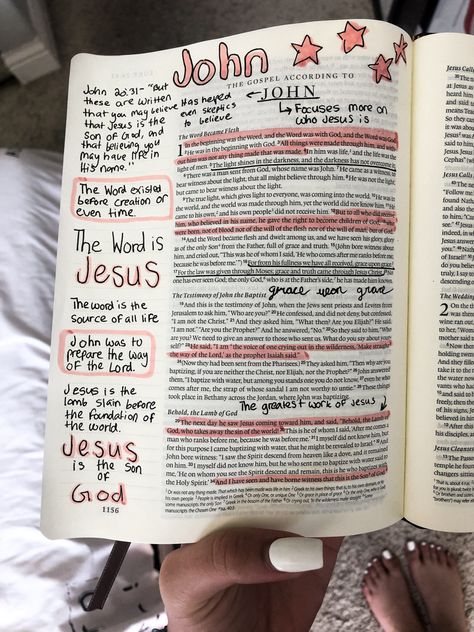 John
THE GOSPEL ACCORDING TO
JOHN
John 20:31- "But
these are written
that you may believe
that Jesus is the
Son of God, and
that believing
you
may have life in
His name."
Has helped
even skeptics
to believe
Focuses more on
who Jesus is
The Word existed
before creation or
even time.
The Word is
JESUS
The word is the
source of all life
John was to
prepare the way
of the Lord.
Jesus is the
lamb slain before
the foundation of
the world.
Jesus
is the son
of
God
1156
The Word Became Flesh
1 In the beginning was the Word, and the Word was with God, and the Word was God.
He was in the beginning with God. All things were made through him, and without
him was not any thing made that was made. In him was life, and the life was the
light of men. The light shines in the darkness, and the darkness has not overcome it.
There was a man sent from God, whose name was John. He came as a witness, to
bear witness about the light, that all might believe through him. He was not the light,
but came to bear witness about the light.
The true light, which gives light to everyone, was coming into the world. He was in
the world, and the world was made through him, yet the world did not know him. He
came to his own, and his own people did not receive him. But to all who did receive
him, who believed in his name, he gave the right to become children of God, who
were born, not of blood nor of the will of the flesh nor of the will of man, but of God.
And the Word became flesh and dwelt among us, and we have seen his glory, glory
as of the only Son from the Father, full of grace and truth. (John bore witness about
him, and cried out, "This was he of whom I said, 'He who comes after me ranks before
me, because he was before me.'") For from his fullness we have all received, grace upon grace.
For the law was given through Moses; grace and truth came through Jesus Christ. No
one has ever seen God; the only God, who is at the Father's side, he has made him known.
grace upon grace
The Testimony of John the Baptist
And this is the testimony of John, when the Jews sent priests and Levites from
Jerusalem to ask him, "Who are you?" He confessed, and did not deny, but confessed,
"I am not the Christ." And they asked him, "What then? Are you Elijah?" He said,
"I am not." "Are you the Prophet?" And he answered, "No." So they said to him, "Who
are you? We need to give an answer to those who sent us. What do you say about
yourself?" He said, "I am the voice of one crying out in the wilderness, 'Make straight
the way of the Lord,' as the prophet Isaiah said."
(Now they had been sent from the Pharisees.) They asked him, "Then why are you
baptizing, if you are neither the Christ, nor Elijah, nor the Prophet?" John answered
them, "I baptize with water, but among you stands one you do not know, even he who
comes after me, the strap of whose sandal I am not worthy to untie." These things
took place in Bethany across the Jordan, where John was baptizing.
The greatest work of Jesus
Behold, the Lamb of God
The next day he saw Jesus coming toward him, and said, "Behold, the Lamb of
God, who takes away the sin of the world! This is he of whom I said, 'After me comes a
man who ranks before me, because he was before me.' I myself did not know him, but
for this purpose I came baptizing with water, that he might be revealed to Israel." And
John bore witness: "I saw the Spirit descend from heaven like a dove, and it remained
on him. I myself did not know him, but he who sent me to baptize with water said to
me, 'He on whom you see the Spirit descend and remain, this is he who baptizes with
the Holy Spirit.' And I have seen and have borne witness that this is the Son of God."
Jesus Calls
The Wedding
Jesus Cleanses